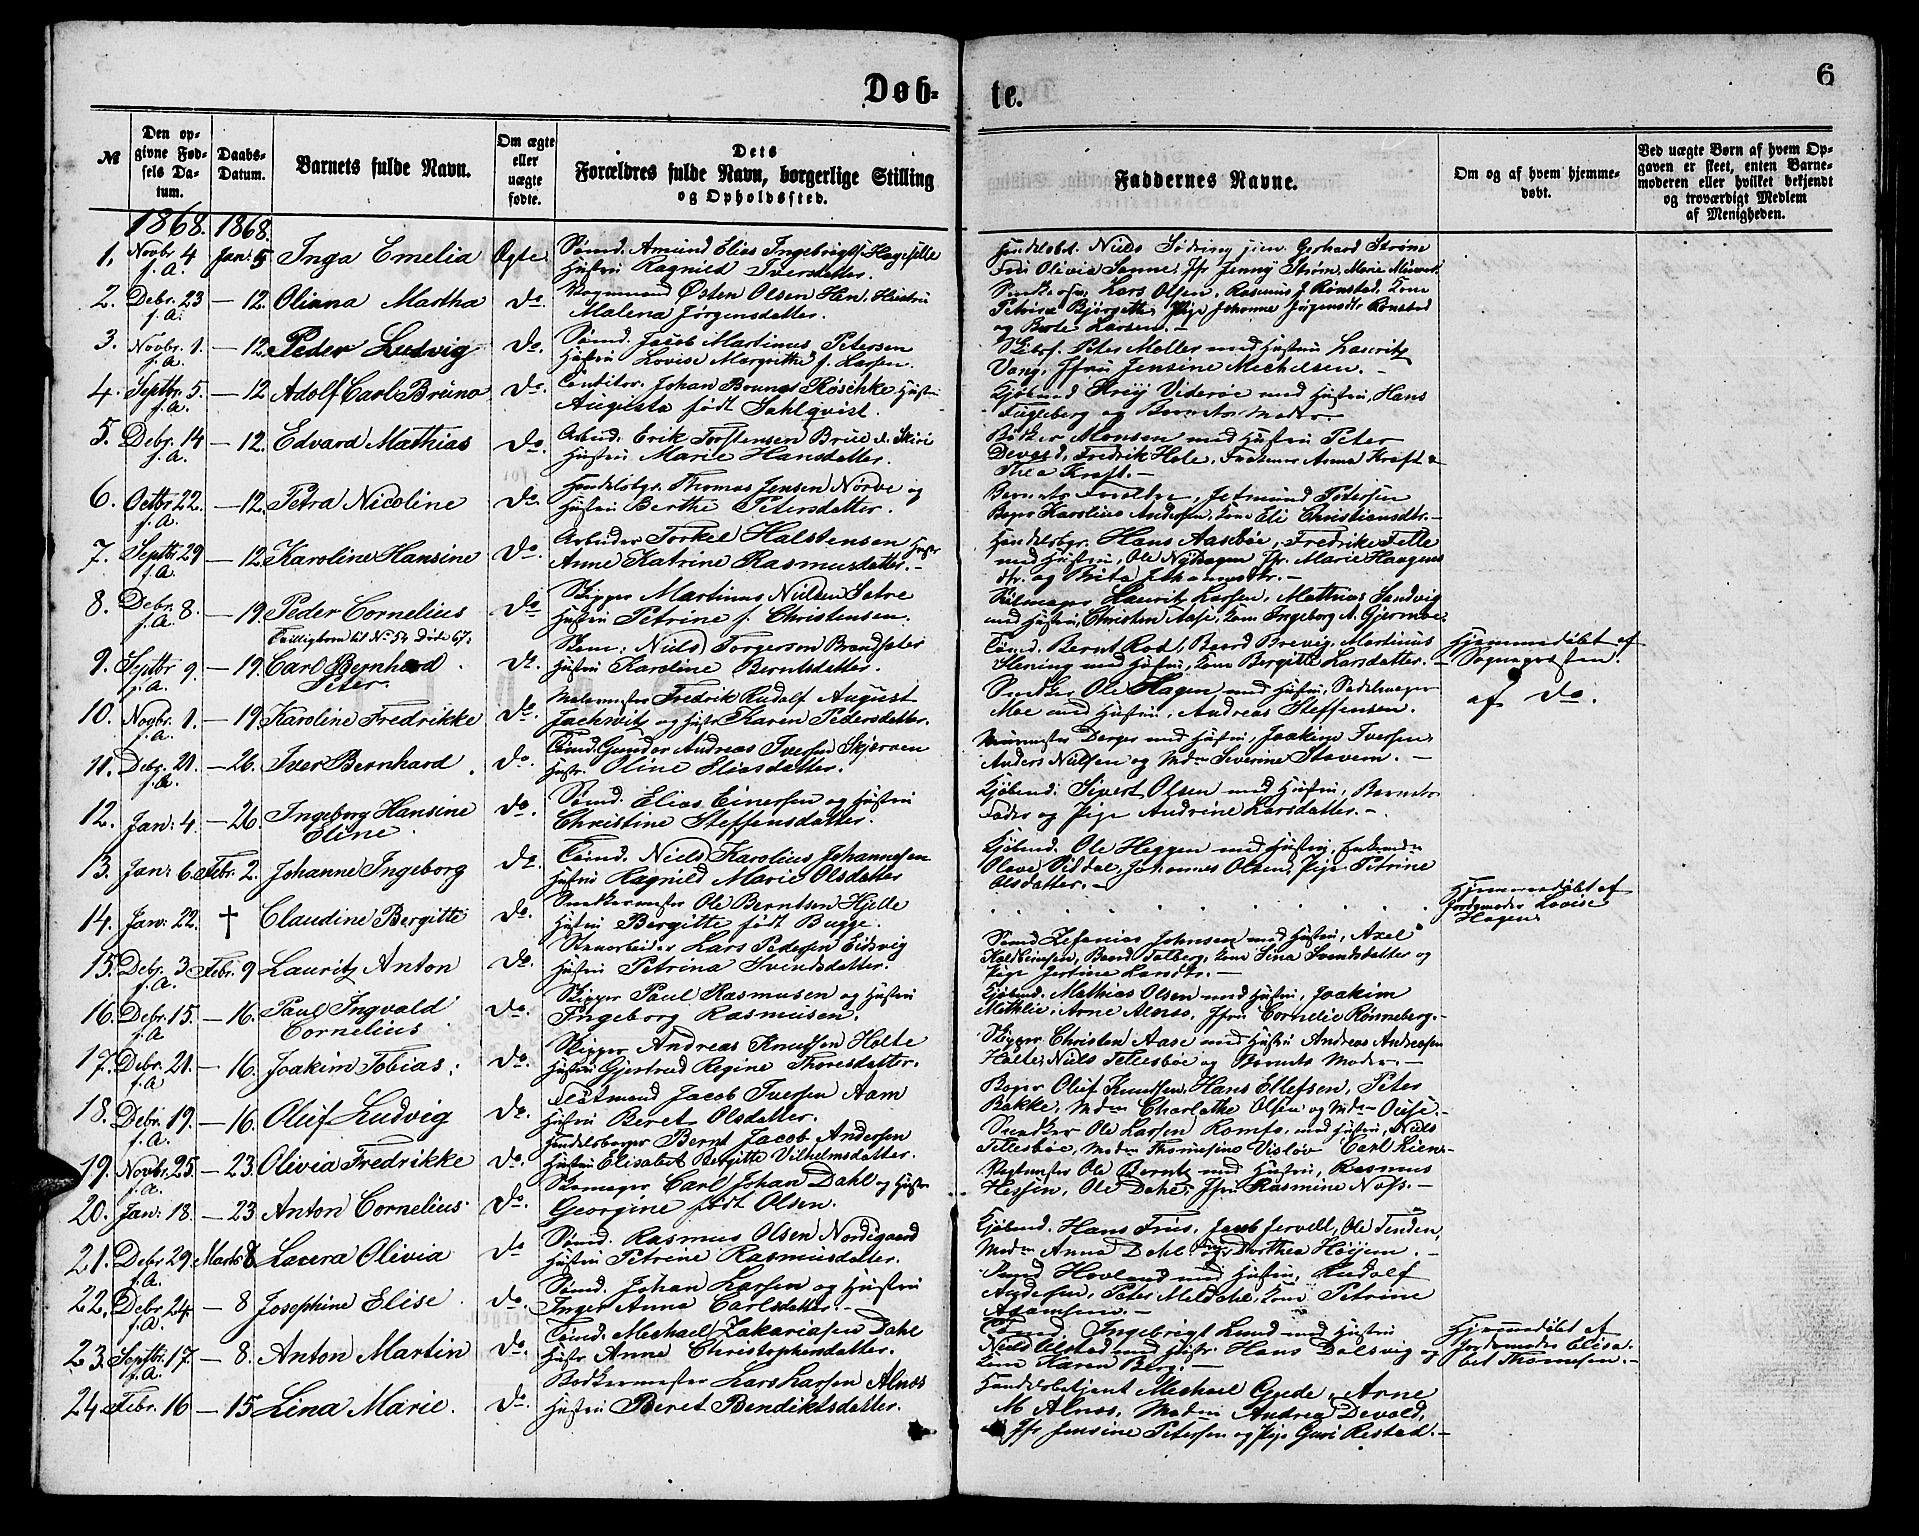 Døb-
te.
6
№
Den op-
givne Fød-
sels Da-
tum.
Daabs-
Datum.
Barnets fulde Navn.
Om ægte
eller
uægte
fødte.
Dets
Forældres fulde Navn, borgerlige Stilling
og Opholdssted.
Faddernes Navne.
Om og af hvem hjemme-
døbt.
Ved uægte Børn af hvem Op-
gaven er skeet, enten Barne-
moderen eller hvilket bekjendt
og troværdigt Medlem
af Menigheden.
1868. 1868.
1. Novbr 4 f.A. Jan: 5 Inga Emelia Ægte Sømd. Amund Elias Ingebrigts. Hagefille
Hustru Ragnild Iversdatter.
Handelsbet. Niels Sødring jun. Gerhard Strøm
Frü Olivia Sanne, Jfr Jenny Strøm, Marie
2. Debr. 23 f.A. — 12. Oliana Martha do Vognmand Østen Olsen Hustru
Malena Jørgensdatter.
Lars Olsen, Rasmus J. Rønstad, Kone
Petrine Bjørgette, Pige Johanne Jørgensdtr Rønstad
og Berte Larsen. —
3. Novbr. 1. f.A. — 12. Peder Ludvig do. Sømd. Jacob Martinus Petersen
Hustru Lovise Margrethe f. Larsen.
Peter Møller med Hustru Lauritz
Vang, Jfru Jensine Mechelsen. —
4. Septbr. 5. f.A. — 12 Adolf Carl Bruno do. Conditor. Johan Brunos Røschke Hustru
Augusta født Sahlqvist.
Kjøbmd Krøy Viderøe med Hustru, Hans
Fugleberg og Barnets Moder —
5. Debr. 14 f.A. — 12. Edvard Mathias do Arbmd. Erik Torstensen Brue
Hustru Marie Hansdatter.
Bødker Monsen med Hustru Peter
Devold, Fredrik Hole, Anna Kraft &
Thea Kraft. —
6. Octbr 22. f.A. — 12. Petra Nicoline do Handelsbgr. Thomas Jensen Nørve og
Hustru Berthe Petersdatter.
Barnets Forældre, Jetmund Petersen
Bager Karolius Andersen, Kone Eli Christiansdtr. —
7. Septbr 29 f.A. — 12. Karoline Hansine do. Arbeider Torkel Halstensen Hustr
Anne Katrine Rasmusdatter. —
Handelsbgr. Hans Aasbøe, Fredrik Telle
med Hustru, Ole Nyhagen Jfr. Marie Haagens
dtr. og Brita Johannesdtr. —
8. Debr. 8. f.A. — 19. Peder Cornelius do Skipper Martinus Nielsen Sætre
Hustru Petrine f. Christensen.
Seilmager Lauritz Larsen, Mathias Sandvig
med Hustru, Christen Aase, Kone Ingeborg A. Gjernøe.
Tvillingbarn til No 54 Døde 67.
9. Septbr 9 f.A. — 19. Carl Bernhard
Peter. do. Niels Torgersen Brandsæter
Hustru Karoline Berntsdatter.
Tømd. Bernt Rod, Baard Brevig, Martinus
Stening med Hustru, Kone Bergitte Larsdatter. —
Hjemmedøbt af
Sognepresten.
10. Novbr. 1. f.A. — 19. Karoline Fredrikke do. Malermester Fredrik Rudolf August
Jachwitz og Hustr Karen Pedersdatter.
Snedker Ole Hagen med Hustru, Sadelmager
Moe med Hustru, Andreas Steffensen.
af do.
11. Debr. 21. f.A. — 26. Iver Bernhard do. Tømd. Gunder Andreas Iversen Skjerven
Hustr. Oline Eliasdatter.
Murmester Dorges med Hustru, Joakim Iversen
Anders Nielsen og Mdm Severine Stavem. —
12. Jan: 4. — 26. Ingeborg Hansine
Eline. do. Sømd. Elias Einersen og Hustru
Christine Steffensdatter.
Kjøbmd. Sivert Olsen med Hustru, Barnets
Fader og Pige Andrine Larsdatter. —
13. Jan: 6. Febr. 2. Johanne Ingeborg do Tømd. Niels Karolius Johannesen
Hustru Ragnild Marie Olsdatter
Kjøbmd. Ole Heggen med Hustru,
Olave Vildal, Johannes Olsen, Pige Petrine
Olsdatter. —
14. Jan: 22. † Claudine Bergitte do. Snedkermester Ole Berntsen Hjelle
Hustru Bergitte født Bugge.
Hjemmedøbt af
Jordemoder Lovise
Hagen.
15. Debr. 3 f.A. Febr. 9 Lauritz Anton do. Stenarbeider Lars Pedersen Eidsvig
Hustru Petrina Svendsdatter.
Sømd Zefanias Johnsen med Hustru, Axel
Kolbeinsen, Baard Talberg, Kone Lina Svendsdatter og
Pige Jertine Larsdtr. —
16. Debr. 15. f.A. — 16. Paul Ingvald
Cornelius. do. Skipper Paul Rasmusen og Hustru
Ingeborg Rasmusen.
Kjøbmd. Mathias Olsen med Hustru, Joakim
Methlie, Arne Alnæs, Jfru Cornelie Rønneberg. —
17. Debr. 21. f.A. — 16. Joakim Tobias. do. Skipper Andreas Knudsen Holte
Hustru Gjertrud Regine Thoresdatter.
Skipper Christen Aase med Hustru Andreas Andreasen
Holte, Niels Tellesbøe og Barnets Moder. —
18. Debr. 19. f.A. — 16. Oluf Ludvig do. Jacob Iversen Aam
Hustru Beret Olsdatter.
Bager Oluf Knudsen, Hans Ellefsen, Peter
Bakke, Mdm Charlotte Olsen og Mdm Ouse. —
19. Novbr. 25. f.A. — 23. Olivia Fredrikke do. Handelsborger Bernt Jacob Andersen
Hustru Elisabet Bergitte Vilhelmsdatter.
Snedker Ole Larsen Romfo med Hustru, Niels
Tellesbøe, Mdm Thomasine Visløv Carl Lien.
20. Jan: 18. — 23 Anton Cornelius. do. Carl Johan Dahl og Hustr
Georgine født Olsen.
Ole Berntz med Hustru, Rasmus
Hessen, Ole Dahl, Jfru Rasmine Næss. —
21. Debr 29. f.A. Marts 8 Lovera Olivia do Sømd. Rasmus Olsen Nordsgaard
Hustru Petrine Rasmusdatter.
Kjøbmd. Hans Friis, Jacob Jervell, Ole Tenden,
Mdm Anna Dahl, Pige Dorthea Høyem. —
22. Debr 24. f.A. — 8 Josephine Elise. do. Sømd. Johan Larsen og Hustru
Inger Anna Carlsdatter. —
Hovland med Hustru, Rudolf
Andersen, Peter Meldahl, Kone Petrine
Adamsen. —
23. Septbr. 17. f.A. — 8. Anton Martin do. Tømd. Mechael Zakariasen Dahl
Hustr Anne Christophersdatter.
Ingebrigt Lund med Hustru
Niels Alstad med Hustr. Hans Dalsvig og
Kone Karen Berg. —
Hjemmedøbt af
Jordemoder Elisa-
bet Thomesen. —
24. Febr. 16 — 15 Lina Marie. do. Bødkermester Lars Larsen Alnæs
Hustru Beret Bendiktsdatter.
Handelsbetjent Mechael Gude, Arne
M Alnæs, Mdm Andrea Devold,
Jfr Jensine Petersen og Pige Guri Restad. —